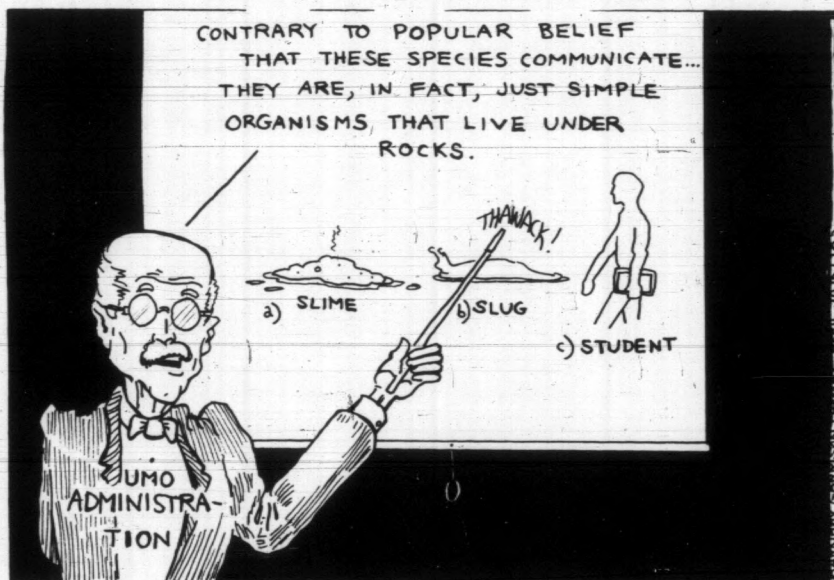 CONTRARY TO POPULAR BELIEF
THAT THESE SPECIES COMMUNICATE...
THEY ARE, IN FACT, JUST SIMPLE
ORGANISMS THAT LIVE UNDER
ROCKS.
THAWACK!
a) SLIME
b) SLUG
c) STUDENT
UMO
ADMINISTRA-
TION